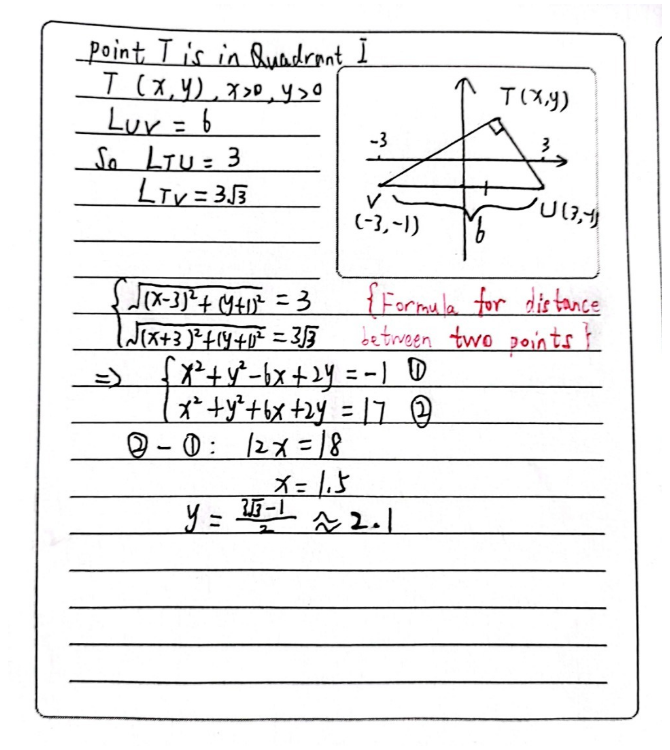 point T is in Quadrant I
T (x,y), x>0, y>0
LUV = 6
So LTU = 3
LTV = 3√3
T(x,y)
-3
3
V
(-3,-1)
6
U(3,-1)
{√(x-3)²+(y+1)² = 3
√(x+3)²+(y+1)² = 3√3
{Formula for distance
between two points}
=> {x²+y²-6x+2y = -1 ①
x²+y²+6x+2y = 17 ②
② - ①: 12x = 18
x = 1.5
y = (3√3-1)/2 ≈ 2.1